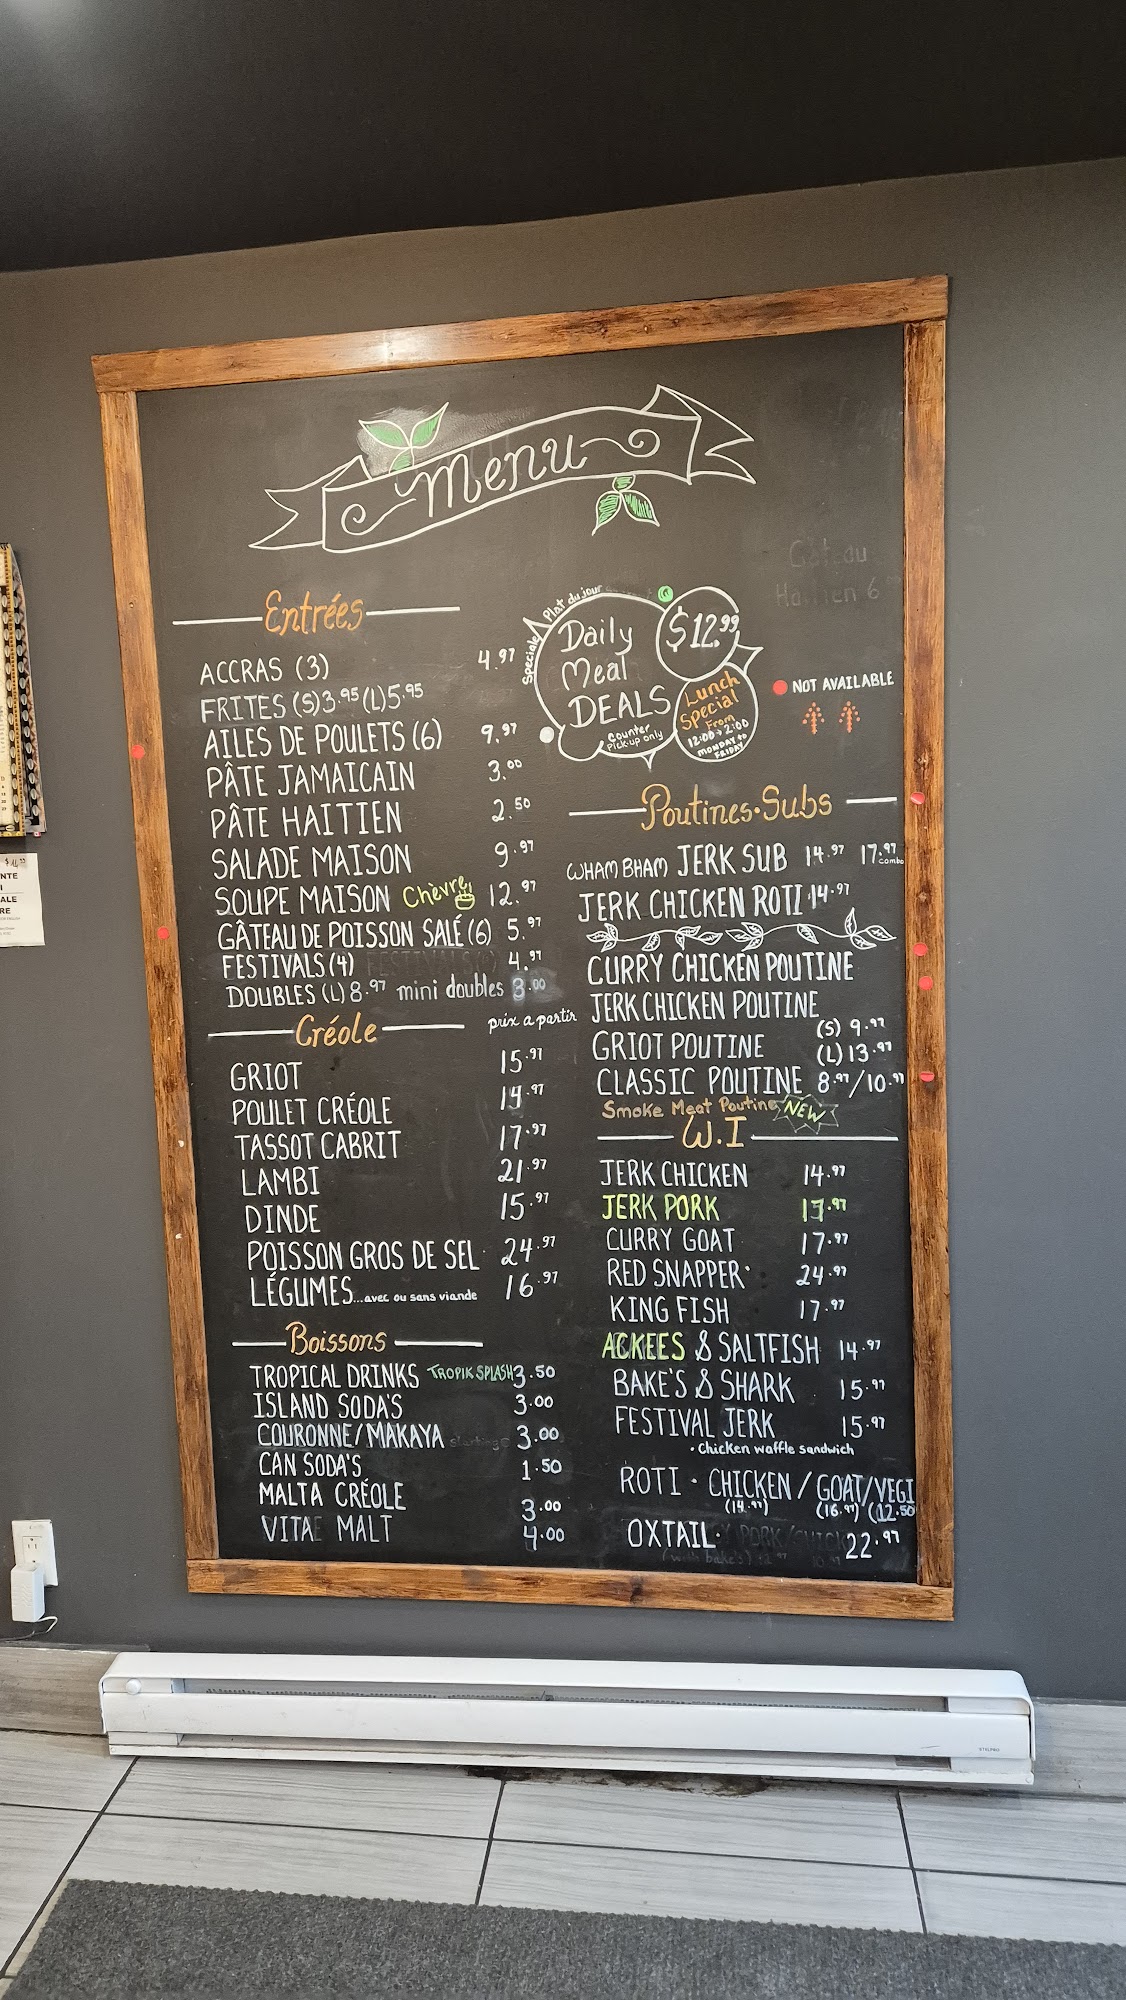 Menu
Entrées
ACCRAS (3) 4.97
FRITES (S) 3.95 (L) 5.95
AILES DE POULETS (6) 9.97
PÂTE JAMAICAIN 3.00
PÂTE HAITIEN 2.50
SALADE MAISON 9.97
SOUPE MAISON Chèvre 12.97
GÂTEAU DE POISSON SALÉ (6) 5.97
FESTIVALS (4) 4.97
DOUBLES (L) 8.97 mini doubles 3.00
Créole prix a partir
GRIOT 15.97
POULET CRÉOLE 14.97
TASSOT CABRIT 17.97
LAMBI 21.97
DINDE 15.97
POISSON GROS DE SEL 24.97
LÉGUMES...avec ou sans viande 16.97
Boissons
TROPICAL DRINKS TROPIK SPLASH 3.50
ISLAND SODA'S 3.00
COURONNE/MAKAYA 3.00
CAN SODA'S 1.50
MALTA CRÉOLE 3.00
VITA MALT 4.00
Gâteau
Haitien 6
Speciale Plat du jour
Daily
Meal
DEALS
Counter
Pick-up only
$12.99
Lunch
Special
From
12:00 → 2:00
MONDAY to
FRIDAY
NOT AVAILABLE
Poutines • Subs
WHAM BHAM JERK SUB 14.97 17.97 combo
JERK CHICKEN ROTI 14.97
CURRY CHICKEN POUTINE
JERK CHICKEN POUTINE
(S) 9.97
GRIOT POUTINE (L) 13.97
CLASSIC POUTINE 8.97/10.97
Smoke Meat Poutine NEW
W.I
JERK CHICKEN 14.97
JERK PORK 17.97
CURRY GOAT 17.97
RED SNAPPER 24.97
KING FISH 17.97
ACKEES & SALTFISH 14.97
BAKE'S & SHARK 15.97
FESTIVAL JERK 15.97
• Chicken waffle sandwich
ROTI • CHICKEN / GOAT/VEGI
(14.97) (16.97) (12.50
OXTAIL 22.97
NTE
ALE
RE